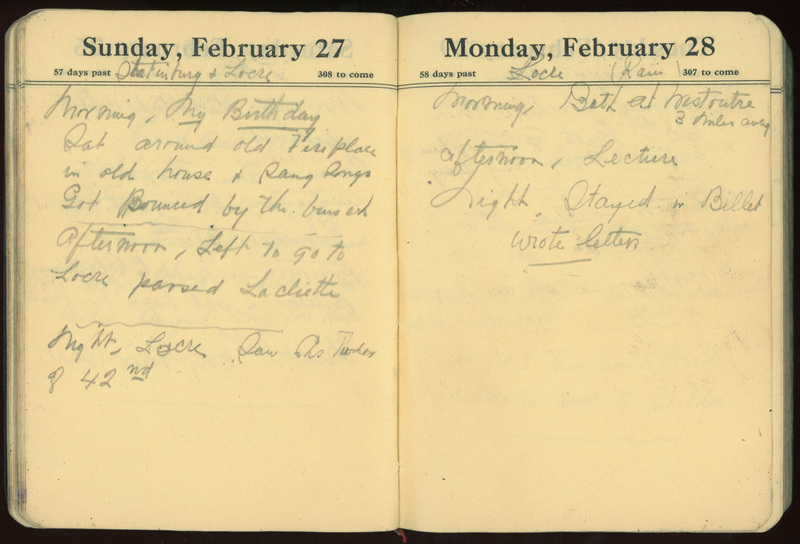 Sunday, February 27
57 days past & Locre 308 to come
Morning, My Birthday
Sat around old Fireplace
in old house & Sang Songs
Got Bounced by the bunch
Afternoon, Left to go to
Locre passed Laclietts
Night, Locre Saw Chs
of 42nd
Monday, February 28
58 days past Locre (Rain) 307 to come
Morning, Bath at Westoutre
3 miles away
afternoon, Lecture
Night, Stayed in Billet
wrote letters